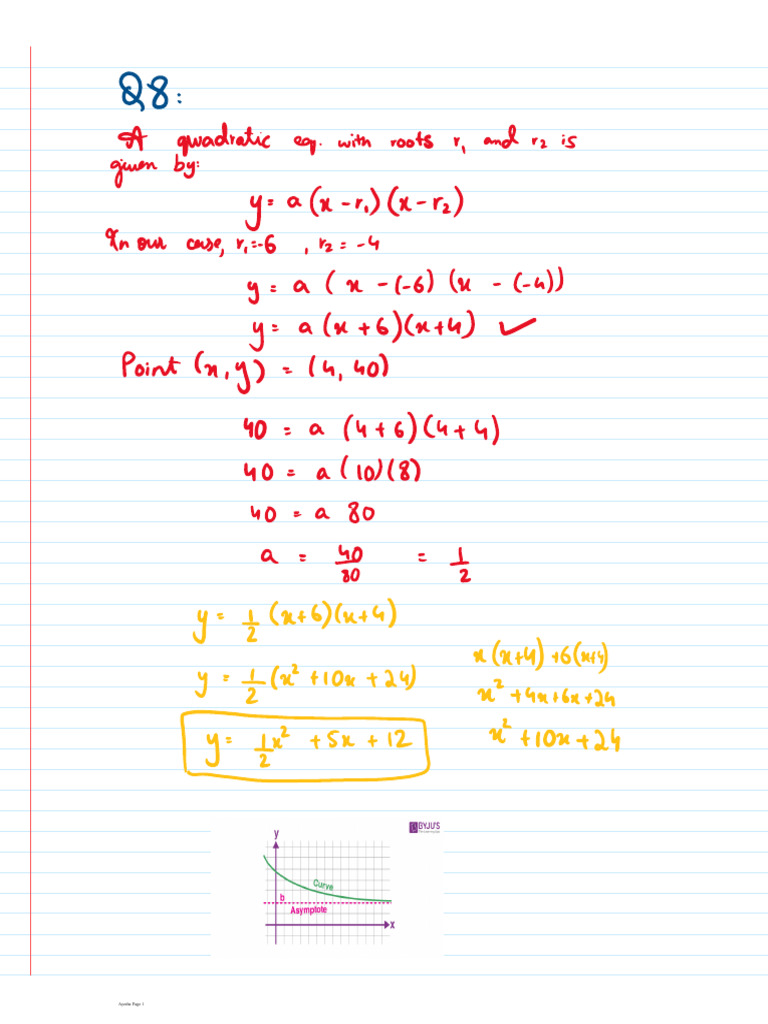 Q8:
A quadratic eq. with roots r₁ and r₂ is
given by:
y = a (x - r₁) (x - r₂)
In our case, r₁=-6 , r₂ = -4
y = a ( x - (-6) (x - (-4))
y = a (x + 6)(x+4) ✓
Point (x, y) = (4, 40)
40 = a (4 + 6) (4 + 4)
40 = a (10) (8)
40 = a 80
a = 40/80 = 1/2
y = 1/2 (x+6)(x+4)
y = 1/2 (x² + 10x + 24)
y = 1/2 x² + 5x + 12
x (x+4) + 6(x+4)
x² + 4x + 6x + 24
x² + 10x + 24
BYJU'S
y
Curve
b
Asymptote
x